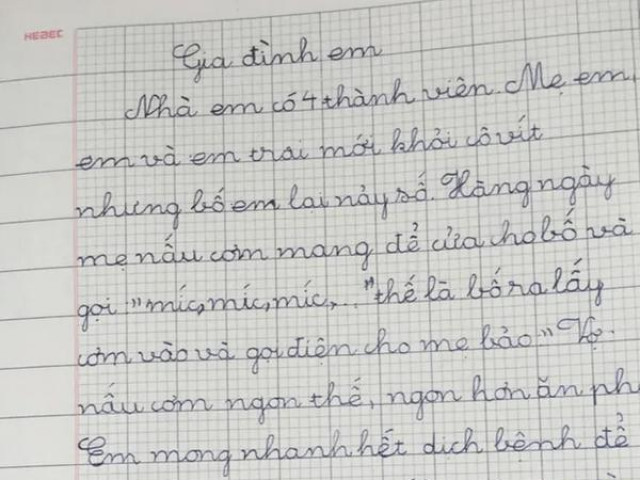 HEBEC
Gia đình em
Nhà em có 4 thành viên. Mẹ em,
em và em trai mới khỏi cô vít
nhưng bố em lại nảy số. Hàng ngày
mẹ nấu cơm mang để cửa cho bố và
gọi "míc, míc, míc,..." thế là bố ra lấy
cơm vào và gọi điện cho mẹ bảo "Vợ
nấu cơm ngon thế, ngon hơn ăn ph
Em mong nhanh hết dịch bệnh để